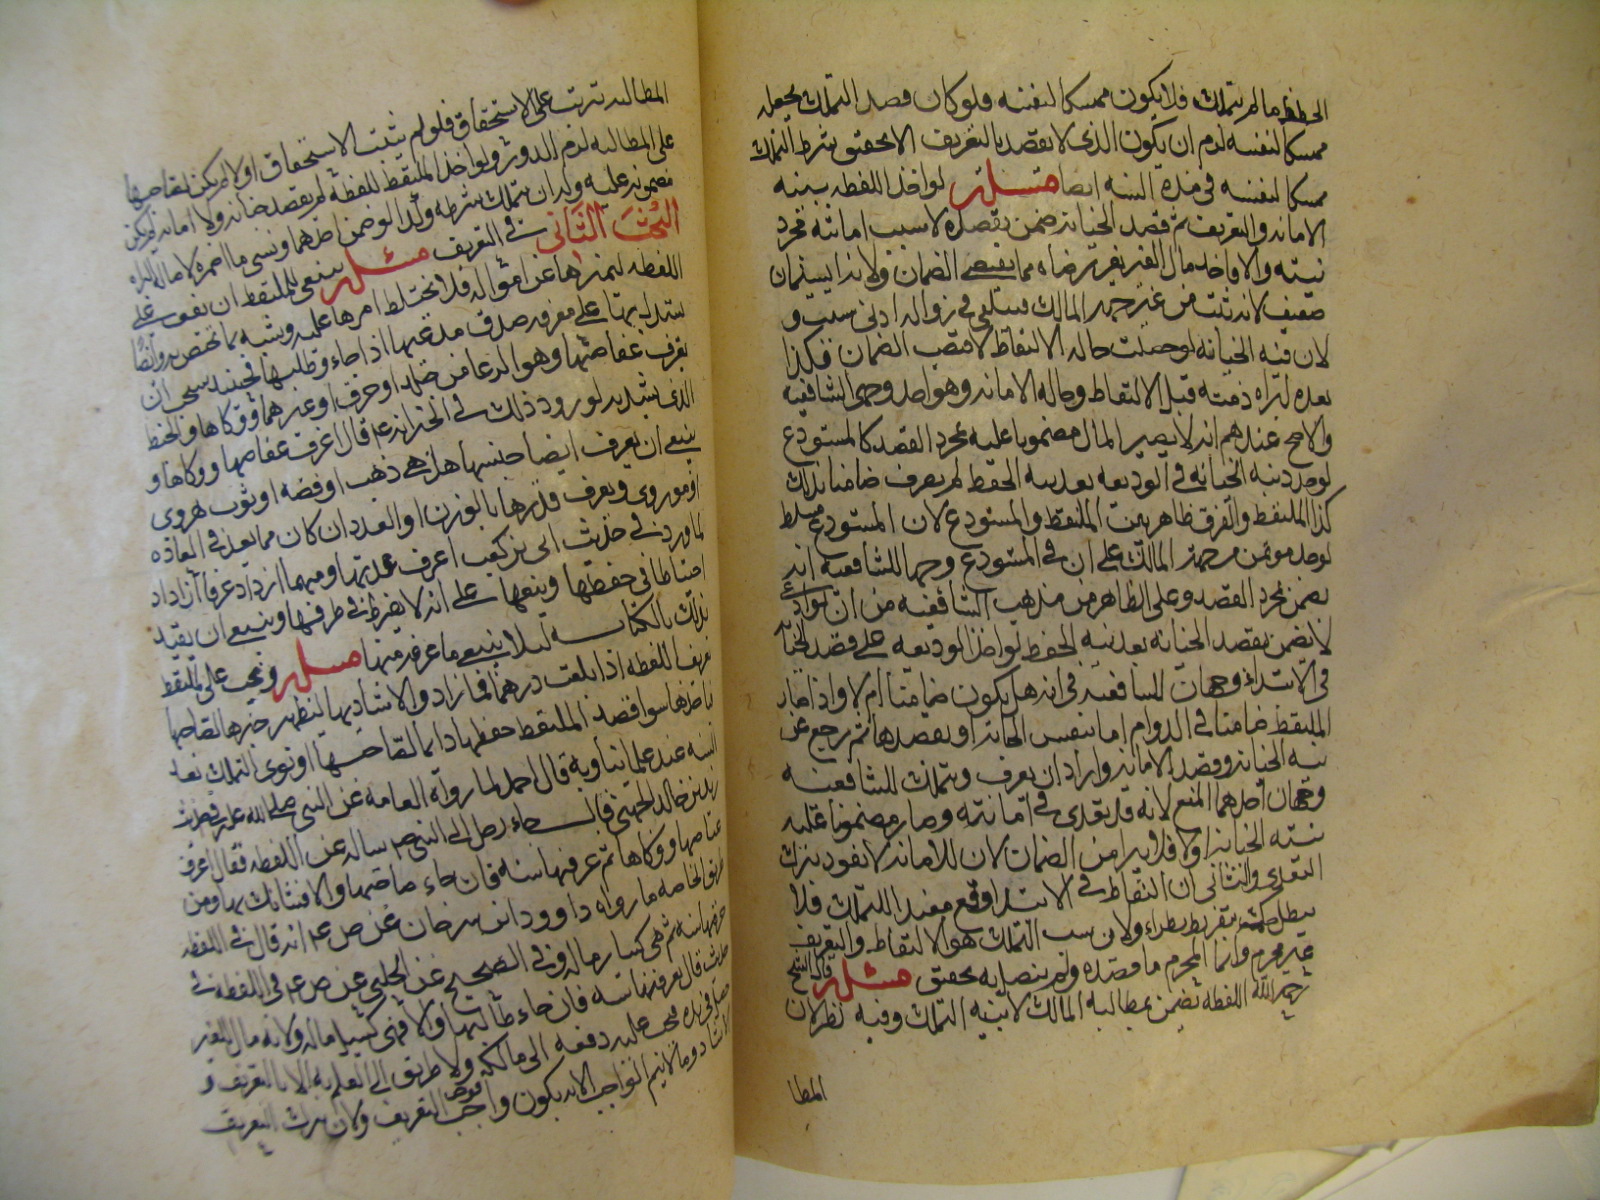 الحفظ ما لم يتملك فلا يكون ممسكا لنفسه فلو كان قصد التملك يجعله
ممسكا لنفسه لزم ان يكون الذى لا يقصد بالتعريف الا تحقق شرط التملك
ممسكا لنفسه فى مدة السنه ايضا مسئلة لو اخذ اللقطه بنية
الامانة والتعريف ثم قصد الخيانة ضمن بقصده لا سبب امانته مجرد
نيته والا فاخذ مال الغير بغير رضاه مما يقتضى الضمان ولانه ايتمان
ضعيف لانه ثبت من غير جهة المالك فيكفى فى زواله ادنى سبب و
لان نية الخيانة لو حصلت حاله الالتقاط لاقتضت الضمان فكذا
بعده لبراءة ذمته قبل الالتقاط وحاله الامانة وهو احد وجهى الشافعيه
والاصح عندهم انه لا يصير المال مضمونا عليه بمجرد القصد كالمستودع
لو جدد نية الخيانة فى الوديعه بعد نية الحفظ لم يعرف ضامنا بذلك
كذا الملتقط والفرق ظاهر بين الملتقط والمستودع لان المستودع مسلط
مؤتمن من جهة المالك على ان فى المستودع وجها للشافعيه انه
يضمن بمجرد القصد وعلى الظاهر من مذهب الشافعيه من ان المودع
لا يضمن بقصد الخيانة بعد نية الحفظ لو اخذ الوديعه على قصد الخيانة
فى الابتداء وجهان للشافعية فى انه هل يكون ضامنا ام لا واذا صار
الملتقط ضامنا فى الدوام اما بنفس الخيانة او بقصدها ثم رجع عن
نية الخيانة وقصد الامانة واراد ان يعرف ويتملك للشافعيه
وجهان احدهما المنع لانه قد تعدى فى امانته وصار مضمونا عليه
بنية الخيانة اولا فلا يبرا من الضمان لان الامانة لا تعود بترك
التعدى والثانى ان التقاطه فى الابتداء وقع مفيدا للتملك فلا
يبطل بتفريط يطراء ولان سبب التملك هو الالتقاط والتعريف
غير محرم وانما المحرم ما قصده ولم يتصل به تحقق مسئلة قال الشيخ
رحمه الله اللقطه تضمن بمطالبة المالك لا بنية التملك وفيه نظر لان
المطا
المطالبه تترتب على الاستحقاق فلو لم يثبت الاستحقاق اولا لم يكن لصاحبها
على المطالبه لزم الدور ولو اخذ الملتقط اللقطه لم يقصد خيانة ولا امانة لم تكن
مضمونة عليه وله ان يتملك بشرطه وكذا لو ضمن احدهما ونسى ما اضمره لاصاله البراءة
البحث الثانى فى التعريف مسئلة ينبغى للملتقط ان يقف على
اللقطه ليميزها عن امواله فلا تختلط امرها عليه وشبه بما تختص به وايضا
يستدل بها على معرفة صدق مدعيها اذا جاء وطلبها فحينئذ يستحب ان
يعرف عفاصها وهو الوعاء من جلد او خرق او غيرهما ووكاها والخيط
الذى يشد به لورود ذلك فى الخبر انه ع قال اعرف عفاصها ووكاها و
ينبغى ان يعرف ايضا جنسها هل هى ذهب او فضه او ثوب هروى
او مروى ويعرف قدرها بالوزن او العدد ان كان مما يعد فى العادة
لما ورد فى حديث ابى بن كعب اعرف عدتها ومهما ازداد عرفا ازداد
احتياطا فى حفظها وينبهها على انه لا يفرط فى طرفها وينبغى ان يقيد
ذلك بالكتابه ليلا ينسى ما عرفه منها مسئلة ويجب على الملتقط
تعريف اللقطه اذا بلغت درهما فما زاد والاشاده بها ليظهر خبرها لصاحبها
فياخذها سواء قصد الملتقط حفظها دائما لصاحبها او نوى التملك بعد
السنه عند علمائنا وبه قال احمد لما رواه العامه عن النبى صلى الله عليه فى حديث
زيد بن خالد الجهنى قال جاء رجل الى النبى ص ساله عن اللقطه فقال اعرف
عفاصها ووكاها ثم عرفها سنة فان جاء صاحبها والا فشانك بها ومن
طريق الخاصه ما رواه داوود بن سرحان عن ص ع انه قال فى اللقطه
يعرفها سنه ثم هى كسائر ماله وفى الصحيح عن الحلبى عن ص ع فى اللقطه فى
حديث قال يعرفها سنه فان جاء طالبها والا فهى كسبيل ماله ولانه مال للغير
حصل فى يده فيجب عليه دفعه الى مالكه ولا طريق الى العلم به الا بالتعريف و
الانشاد وما لا يتم الواجب الا به يكون واجبا فوجب التعريف ولان ترك التعريف